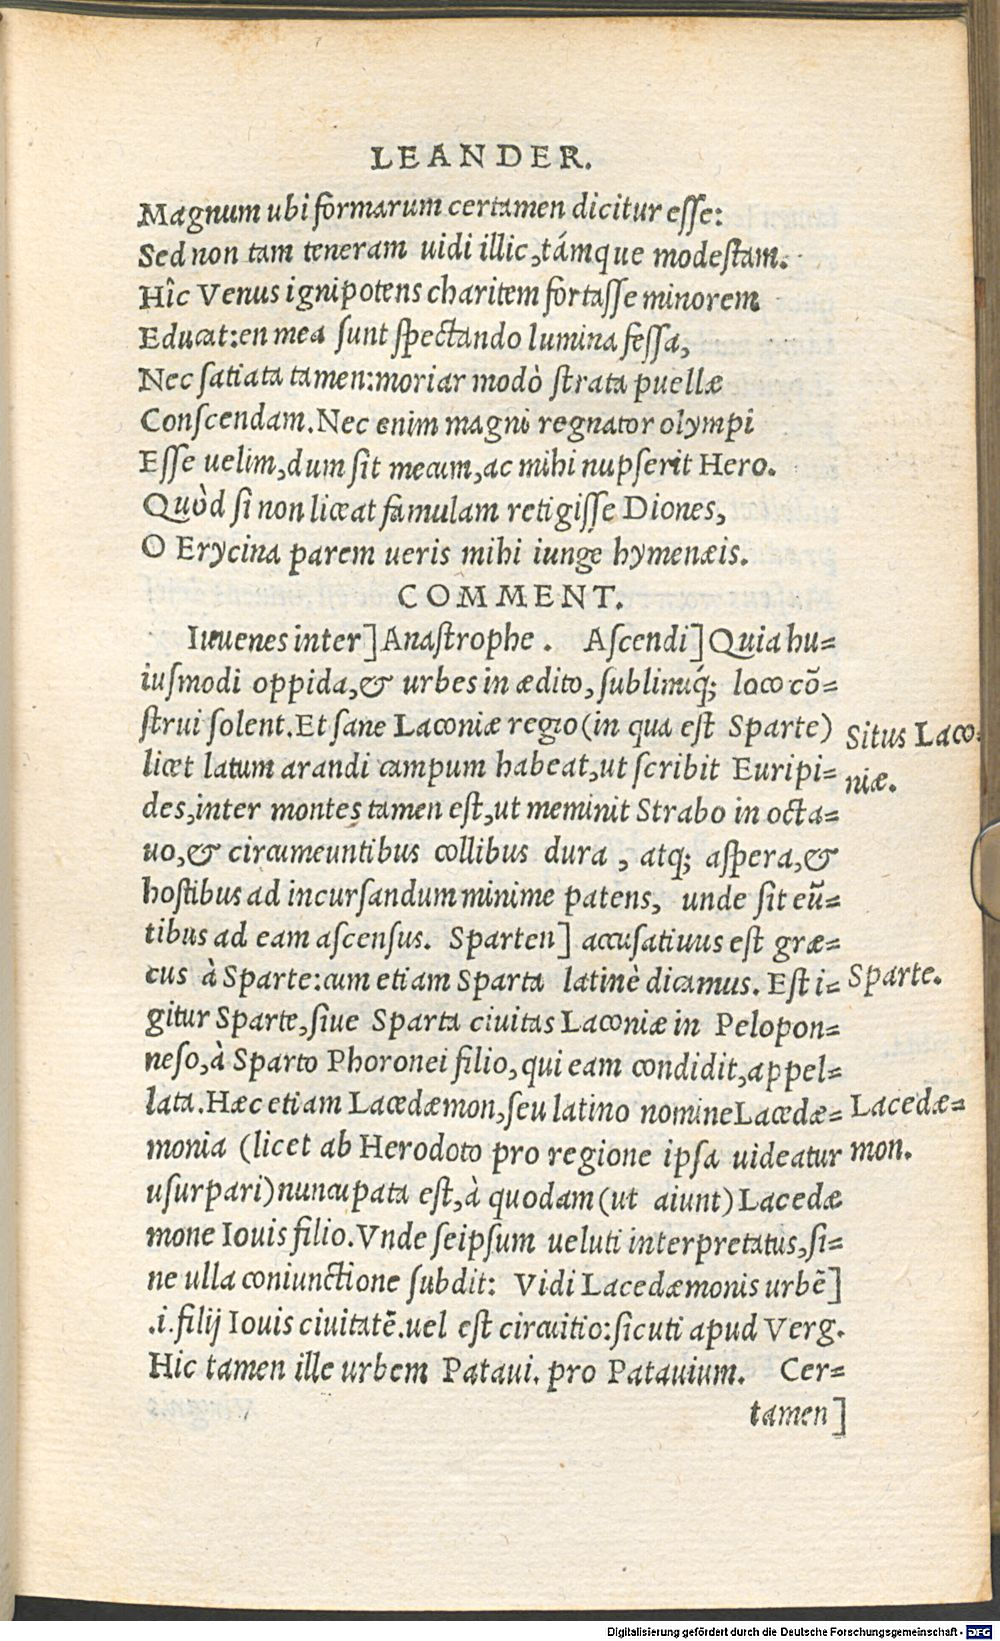 LEANDER.
Magnum ubi formarum certamen dicitur esse:
Sed non tam teneram uidi illic, támque modestam.
Hîc Venus ignipotens charitem fortasse minorem
Educat: en mea sunt spectando lumina fessa,
Nec satiata tamen: moriar modò strata puellæ
Conscendam. Nec enim magni regnator olympi
Esse uelim, dum sit mecum, ac mihi nupserit Hero.
Quòd si non liceat famulam retigisse Diones,
O Erycina parem ueris mihi iunge hymenæis.
COMMENT.
Iuuenes inter] Anastrophe. Ascendi] Quia hu=
iusmodi oppida, & urbes in ædito, sublimiq́; loco cō=
strui solent. Et sane Laconiæ regio (in qua est Sparte)
Situs Laco=
licet latum arandi campum habeat, ut scribit Euripi=
niæ.
des, inter montes tamen est, ut meminit Strabo in octa=
uo, & circumeuntibus collibus dura, atq; aspera, &
hostibus ad incursandum minime patens, unde sit eū=
tibus ad eam ascensus. Sparten] accusatiuus est græ=
cus à Sparte: cum etiam Sparta latinè dicamus. Est i=
Sparte.
gitur Sparte, siue Sparta ciuitas Laconiæ in Pelopon=
neso, à Sparto Phoronei filio, qui eam condidit, appel=
lata. Hæc etiam Lacedæmon, seu latino nomine Lacedæ=
Lacedæ=
monia (licet ab Herodoto pro regione ipsa uideatur
mon.
usurpari) nuncupata est, à quodam (ut aiunt) Lacedæ
mone Iouis filio. Vnde seipsum ueluti interpretatus, si=
ne ulla coniunctione subdit: Vidi Lacedæmonis urbē]
.i. filij Iouis ciuitatē. uel est circuitio: sicuti apud Verg.
Hic tamen ille urbem Pataui. pro Patauium. Cer=
tamen]
Digitalisierung gefördert durch die Deutsche Forschungsgemeinschaft - DFG